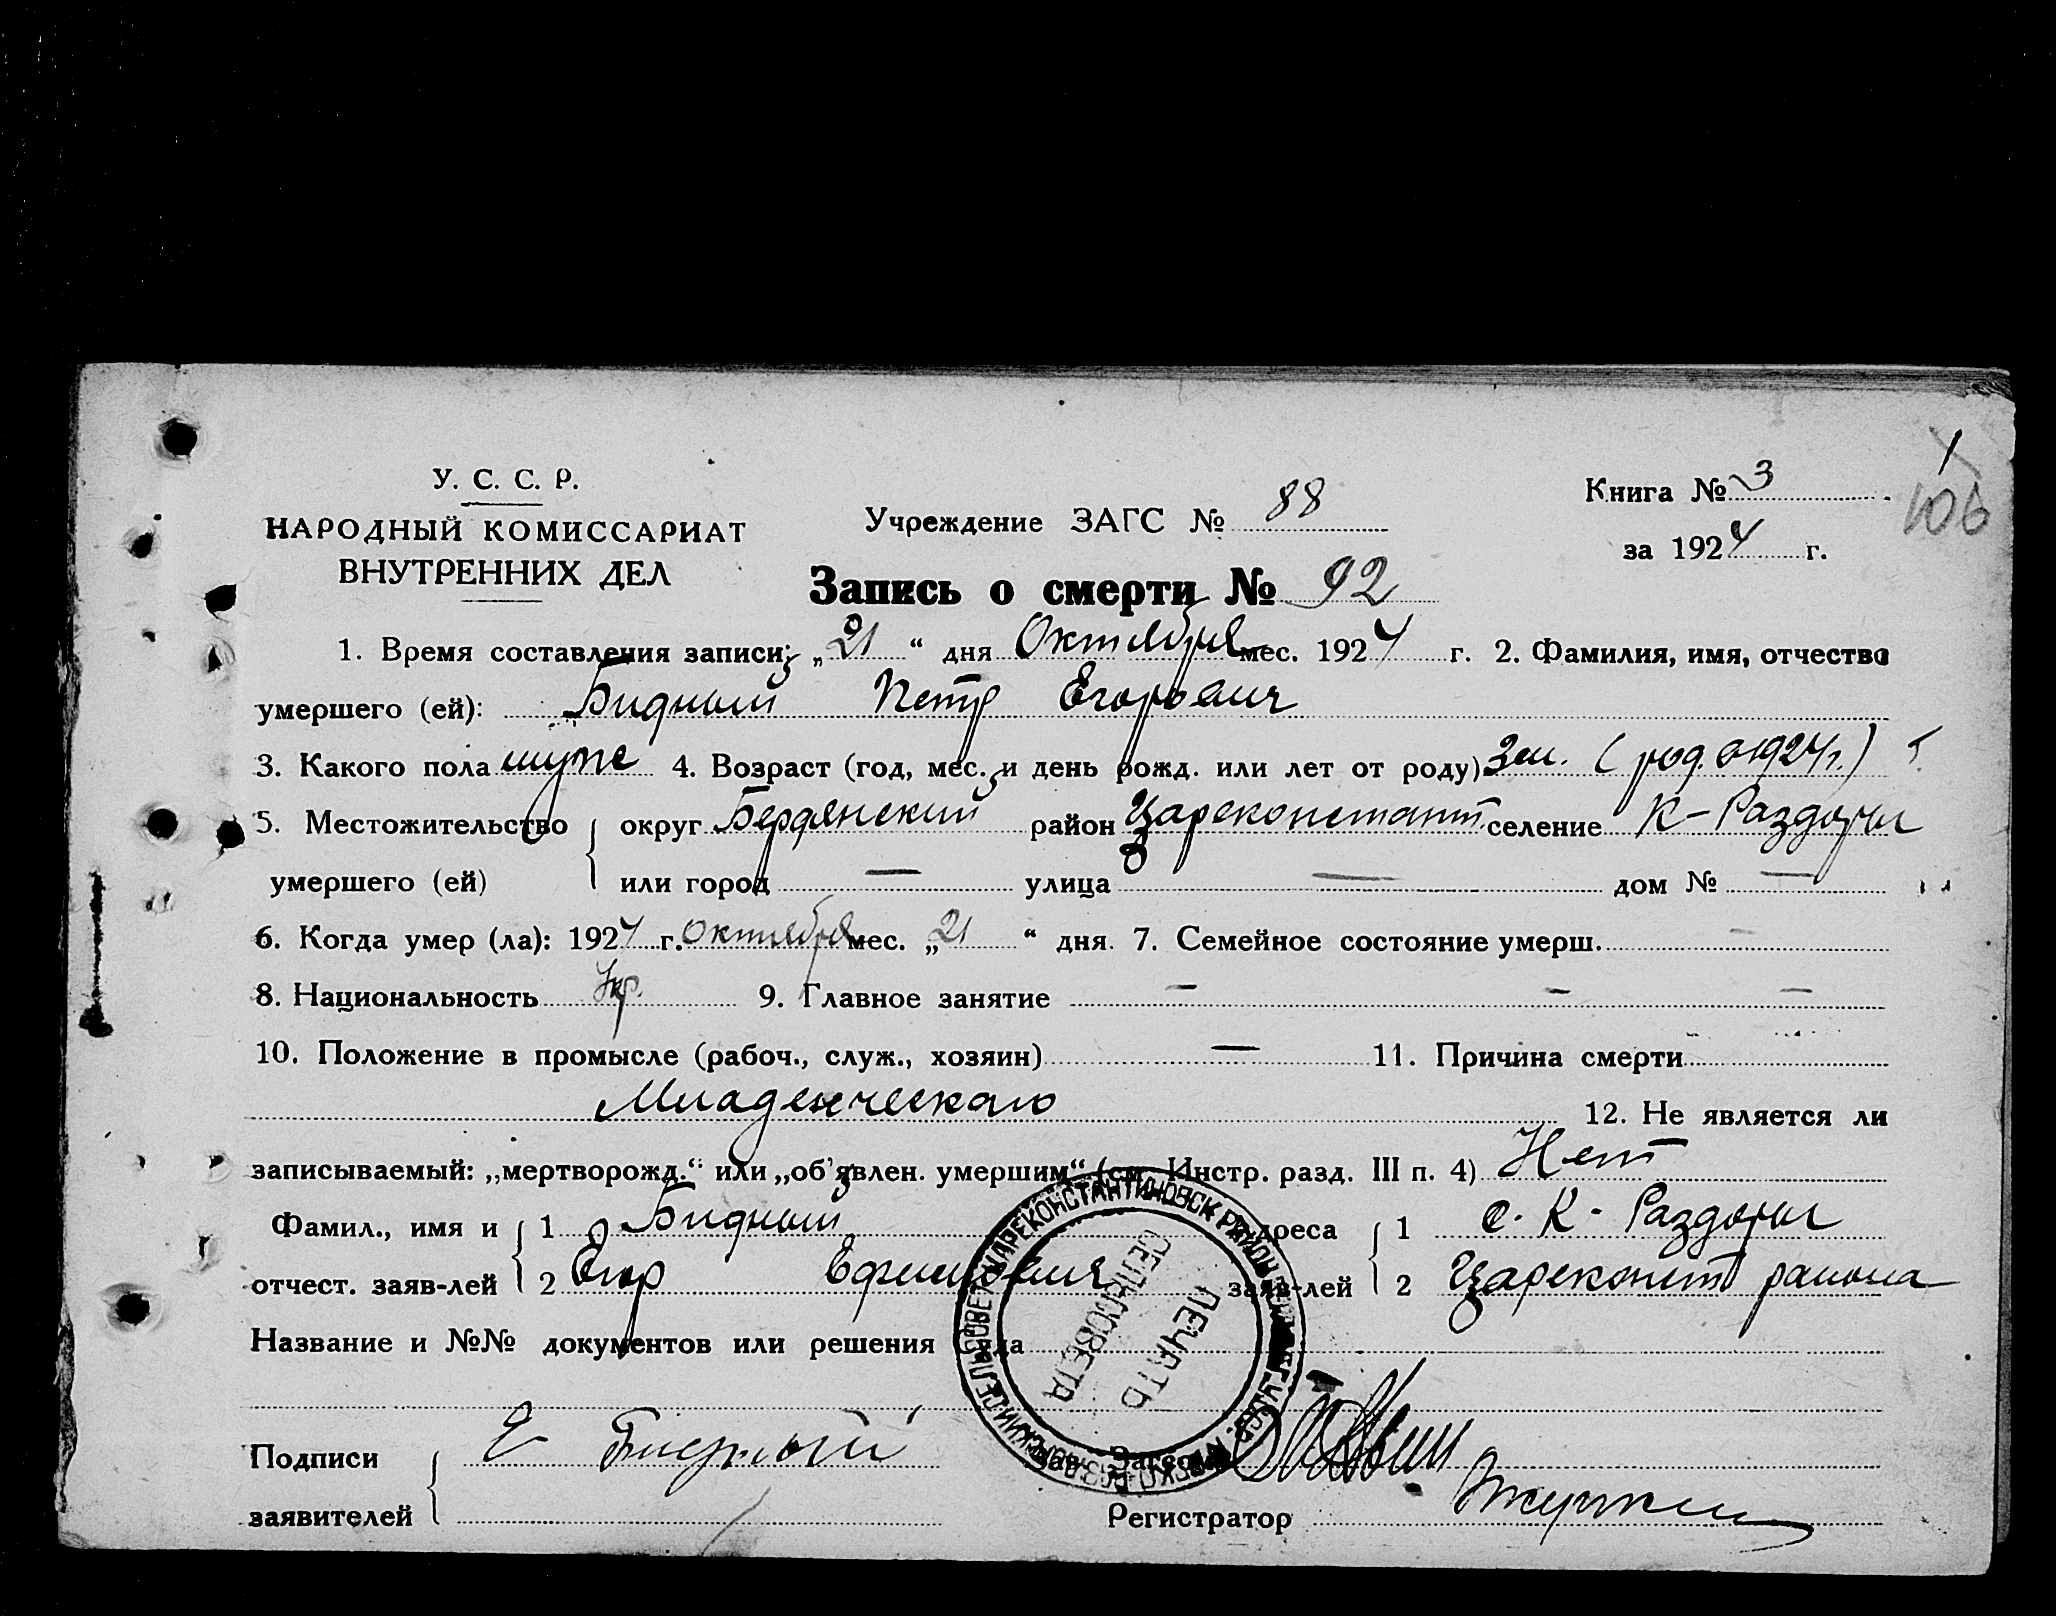 1
106
У. С. С. Р.
НАРОДНЫЙ КОМИССАРИАТ
ВНУТРЕННИХ ДЕЛ
Учреждение ЗАГС № 88
Книга № 3
за 1924 г.
Запись о смерти № 92
1. Время составления записи: „21“ дня Октября мес. 1924 г. 2. Фамилия, имя, отчество
умершего (ей): Бидный Петр Егорович
3. Какого пола муже 4. Возраст (год, мес. и день рожд. или лет от роду) 3м. (род. 1924г.)
5. Местожительство округ Бердянский район Цареконстант. селение К-Раздоры
умершего (ей) или город — улица — дом № —
6. Когда умер (ла): 1924 г. Октября мес. „21“ дня. 7. Семейное состояние умерш. —
8. Национальность Укр. 9. Главное занятие — — —
10. Положение в промысле (рабоч., служ., хозяин) — 11. Причина смерти
Младенческого 12. Не является ли
записываемый: „мертворожд.“ или „об'явлен. умершим“ (см. Инстр. разд. III п. 4) Нет
Фамил., имя и 1 Бидный адреса 1 с. К-Раздоры
отчест. заяв-лей 2 Егор Ефимович заяв-лей 2 Цареконст района
Название и №№ документов или решения суда
Подписи Е Бидный Зав. Загсом
заявителей Регистратор
ЦАРЕКОНСТАНТИНОВСК РАЙОН
СЕЛЬСОВЕТ
ПЕЧАТЬ
СЕЛЬСОВЕТА